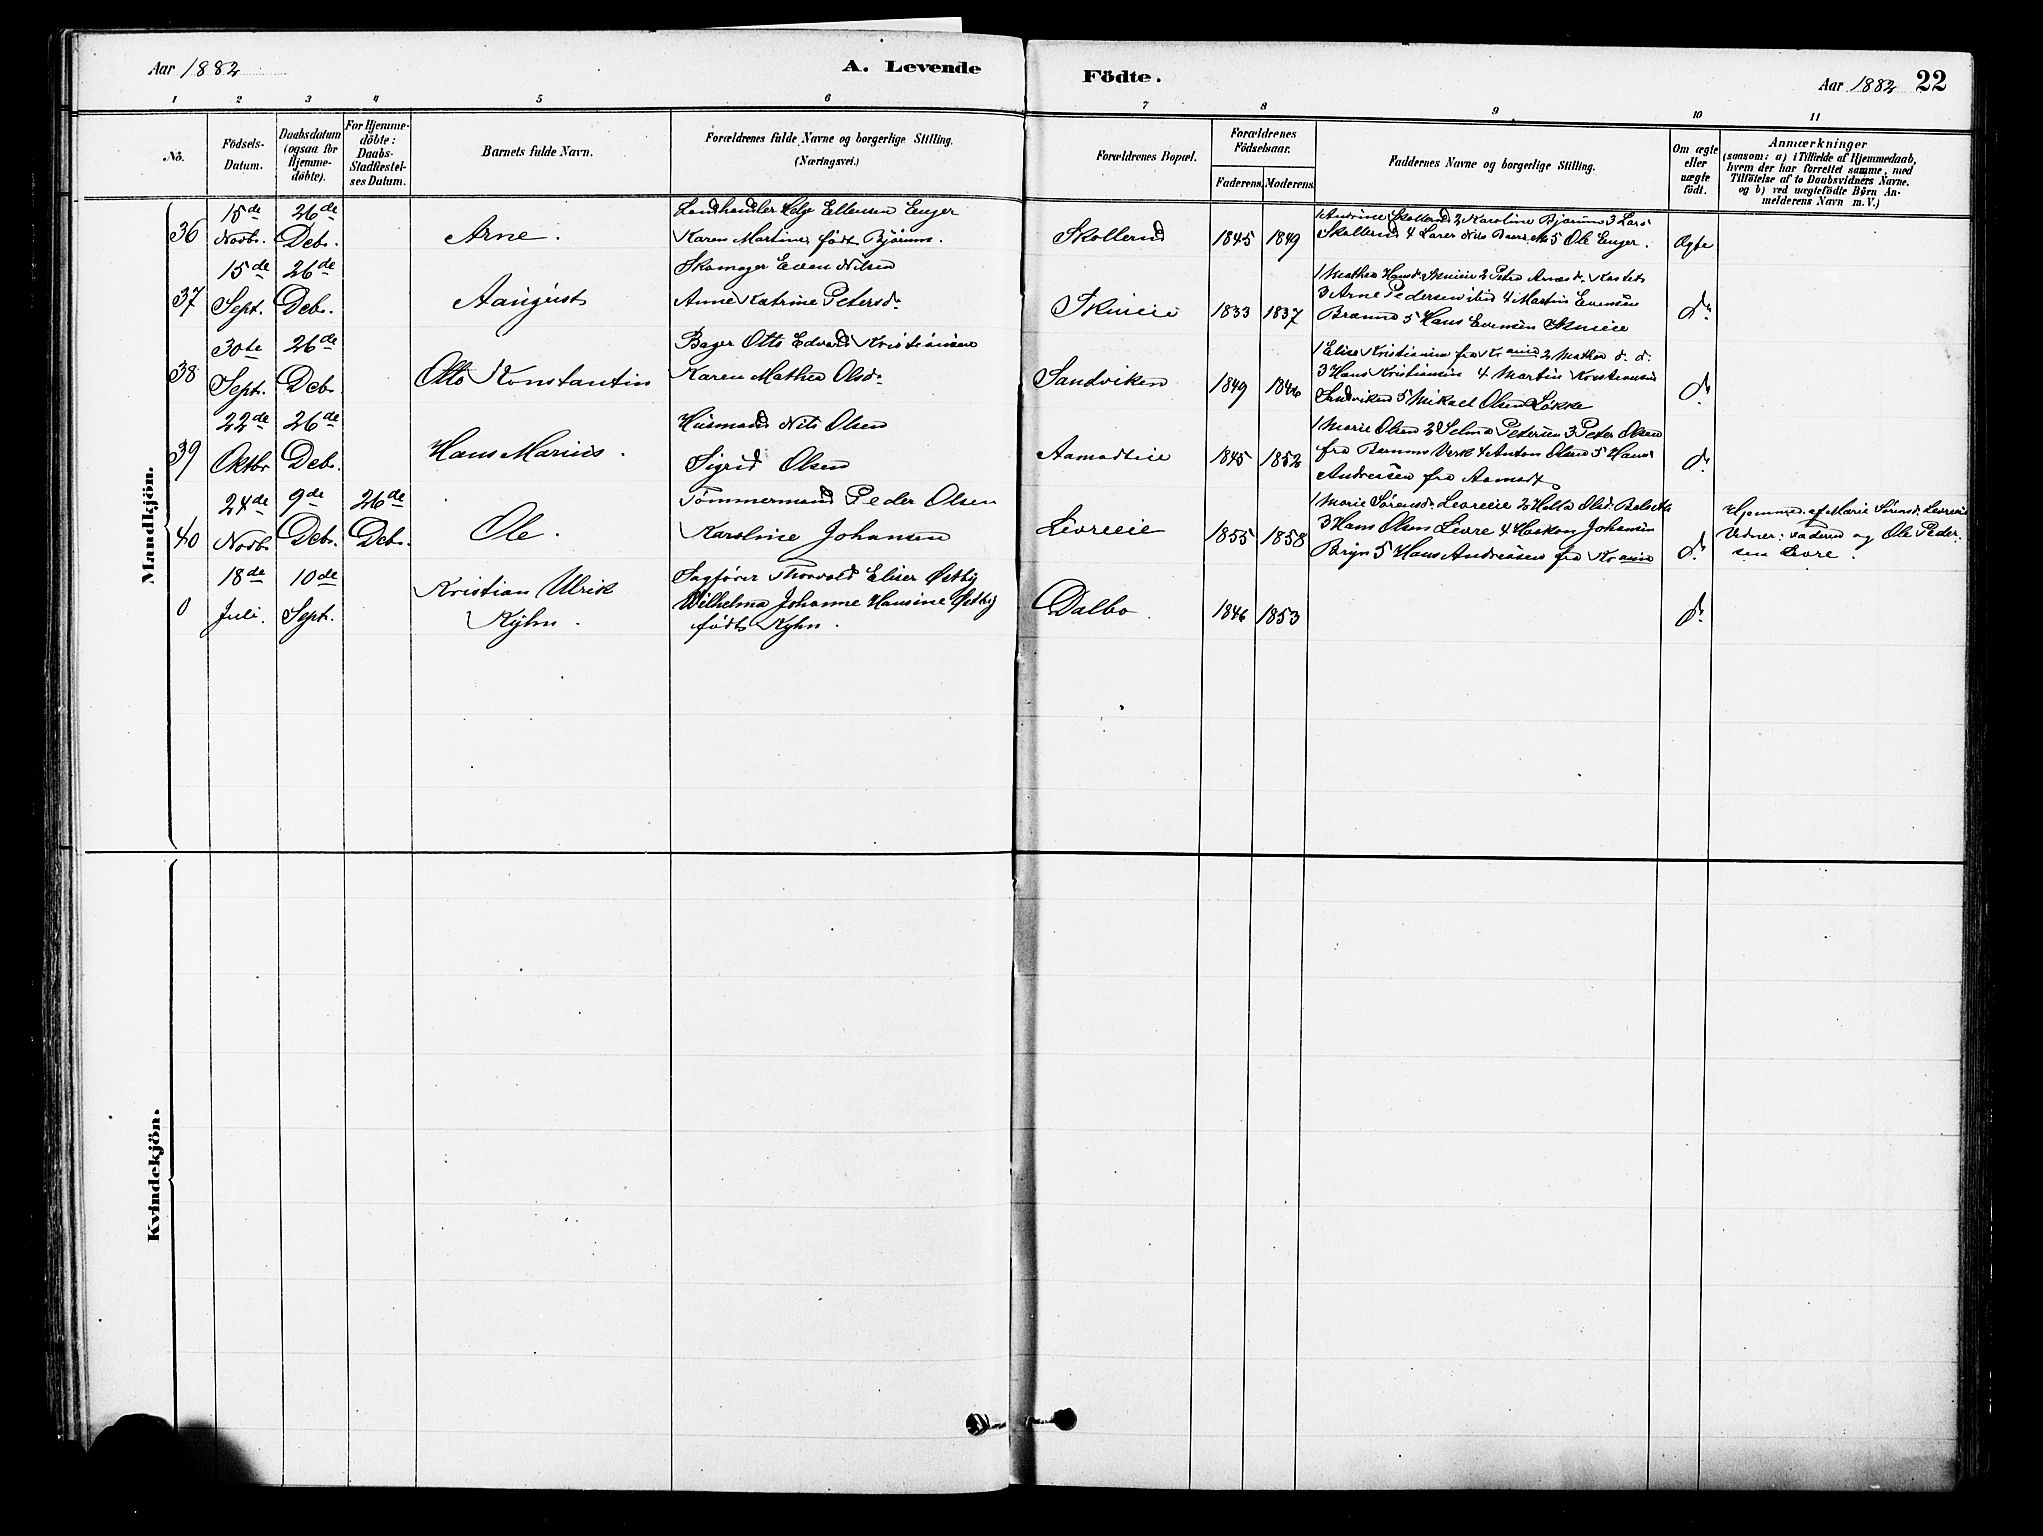 Aar 1882
A. Levende
Födte.
Aar 1882 22
1 2 3 4 5 6 7 8 9 10 11
No.
Födsels-
Datum.
Daabsdatum
(ogsaa for
Hjemme-
döbte).
For Hjemme-
döbte:
Daabs-
Stadfæstel-
ses Datum.
Barnets fulde Navn.
Forældrenes fulde Navne og borgerlige Stilling.
(Næringsvei.)
Forældrenes Bopæl.
Forældrenes
Födselsaar.
Faderens. Moderens.
Faddernes Navne og borgerlige Stilling.
Om ægte
eller
uægte
födt.
Anmærkninger
(saasom: a) i Tilfælde af Hjemmedaab,
hvem der har forrettet samme, med
Tilföielse af to Daabsvidners Navne,
og b) ved uægtefödte Börn An-
melderens Navn m. V.)
Mandkjön.
36
15de Novbr.
26de Debr.
Arne.
Landhandler Helge Ellensen Enger
Karen Martine født Bjørum.
Skollerud
1845 1849
1 Andrine Skollerud 2 Karoline Bjørum 3 Lars
Skollerud 4 Lærer Nils 5 Ole Enger.
Ægte
37
15de Sept.
26de Debr.
Aaugust
Skomager Even Nilsen
Anne Katrine Petersd.
Skuieie
1833 1837
1 Mathea Hansd. Skuieie 2 Petra Arnesd.
3 Arne Pedersen 4 Martin Evensen
5 Hans Evensen Skuieie
do
38
30te Sept.
26de Debr.
Otto Konstantin
Bager Otto Edvard Kristiansen
Karen Mathea Olsd.
Sandviken
1849 1846
1 Elise Kristiansen fra Kr.ania 2 Mathea d. d.
3 Hans Kristiansen 4 Martin Kristiansen
Sandviken 5 Mikael Olsen Løkke
do
39
22de Oktbr
26de Debr.
Hans Marius.
Husmand Nils Olsen
Sigrid Olsen
Aamodteie
1845 1852
1 Marie Olsen 2 Selma Petersen 3 Peter Olsen
fra Bærums Verk 4 Anton Olsen 5 Hans
Andreasen fra Aamodt.
do
40
24de Novbr
9de Debr.
26de Debr.
Ole.
Tømmermand Peder Olsen
Karoline Johansen
Levreeie
1855 1858
1 Marie Sørensd. Levreeie 2 Olsd.
3 Hans Olsen Levre 4 Haakon Johansen
Bryn 5 Hans Andreasen fra Kr.ania
do
Hjemmed. af Marie Sørensd. Levreeie
Vidner: Faderen og Ole Peder-
sen Levre.
0
18de Juli.
10de Sept.
Kristian Ulrik
Kyhn.
Sagfører Thorvald Elieser Østby
Wilhelma Johanne Hansine Østby
født Kyhn.
Dalbo.
1846 1853
do
Kvindekjön.